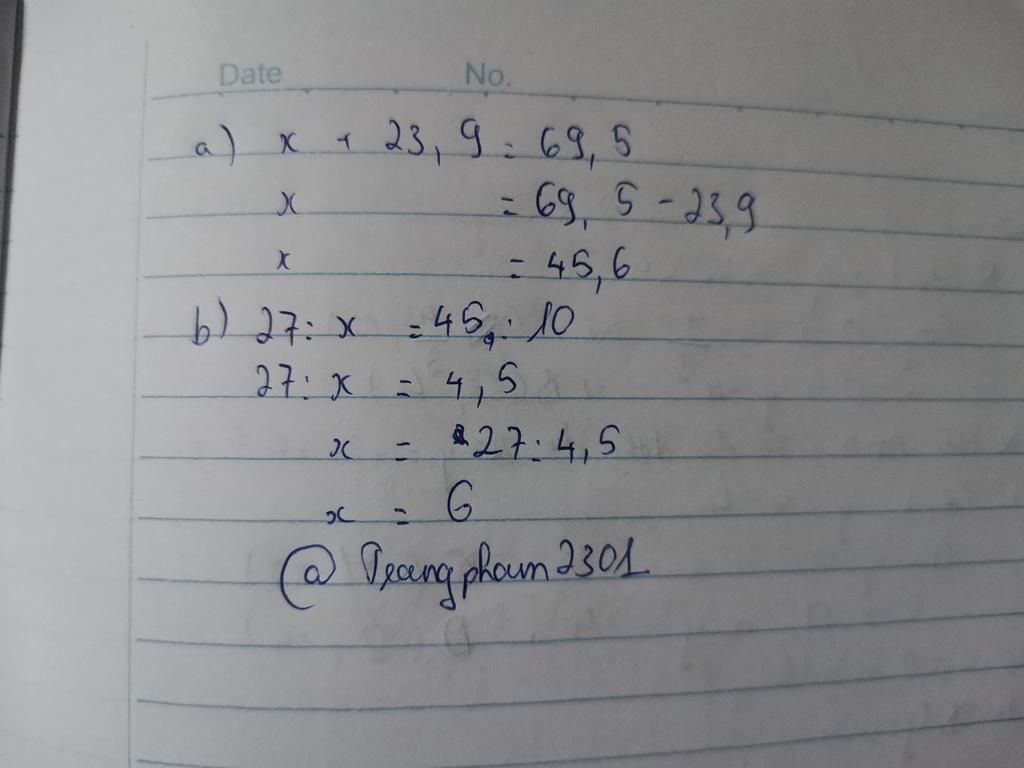 Date No.
a) x + 23,9 = 69,5
x = 69,5 - 23,9
x = 45,6
b) 27 : x = 45 : 10
27 : x = 4,5
x = 27 : 4,5
x = 6
@Trangpham2301